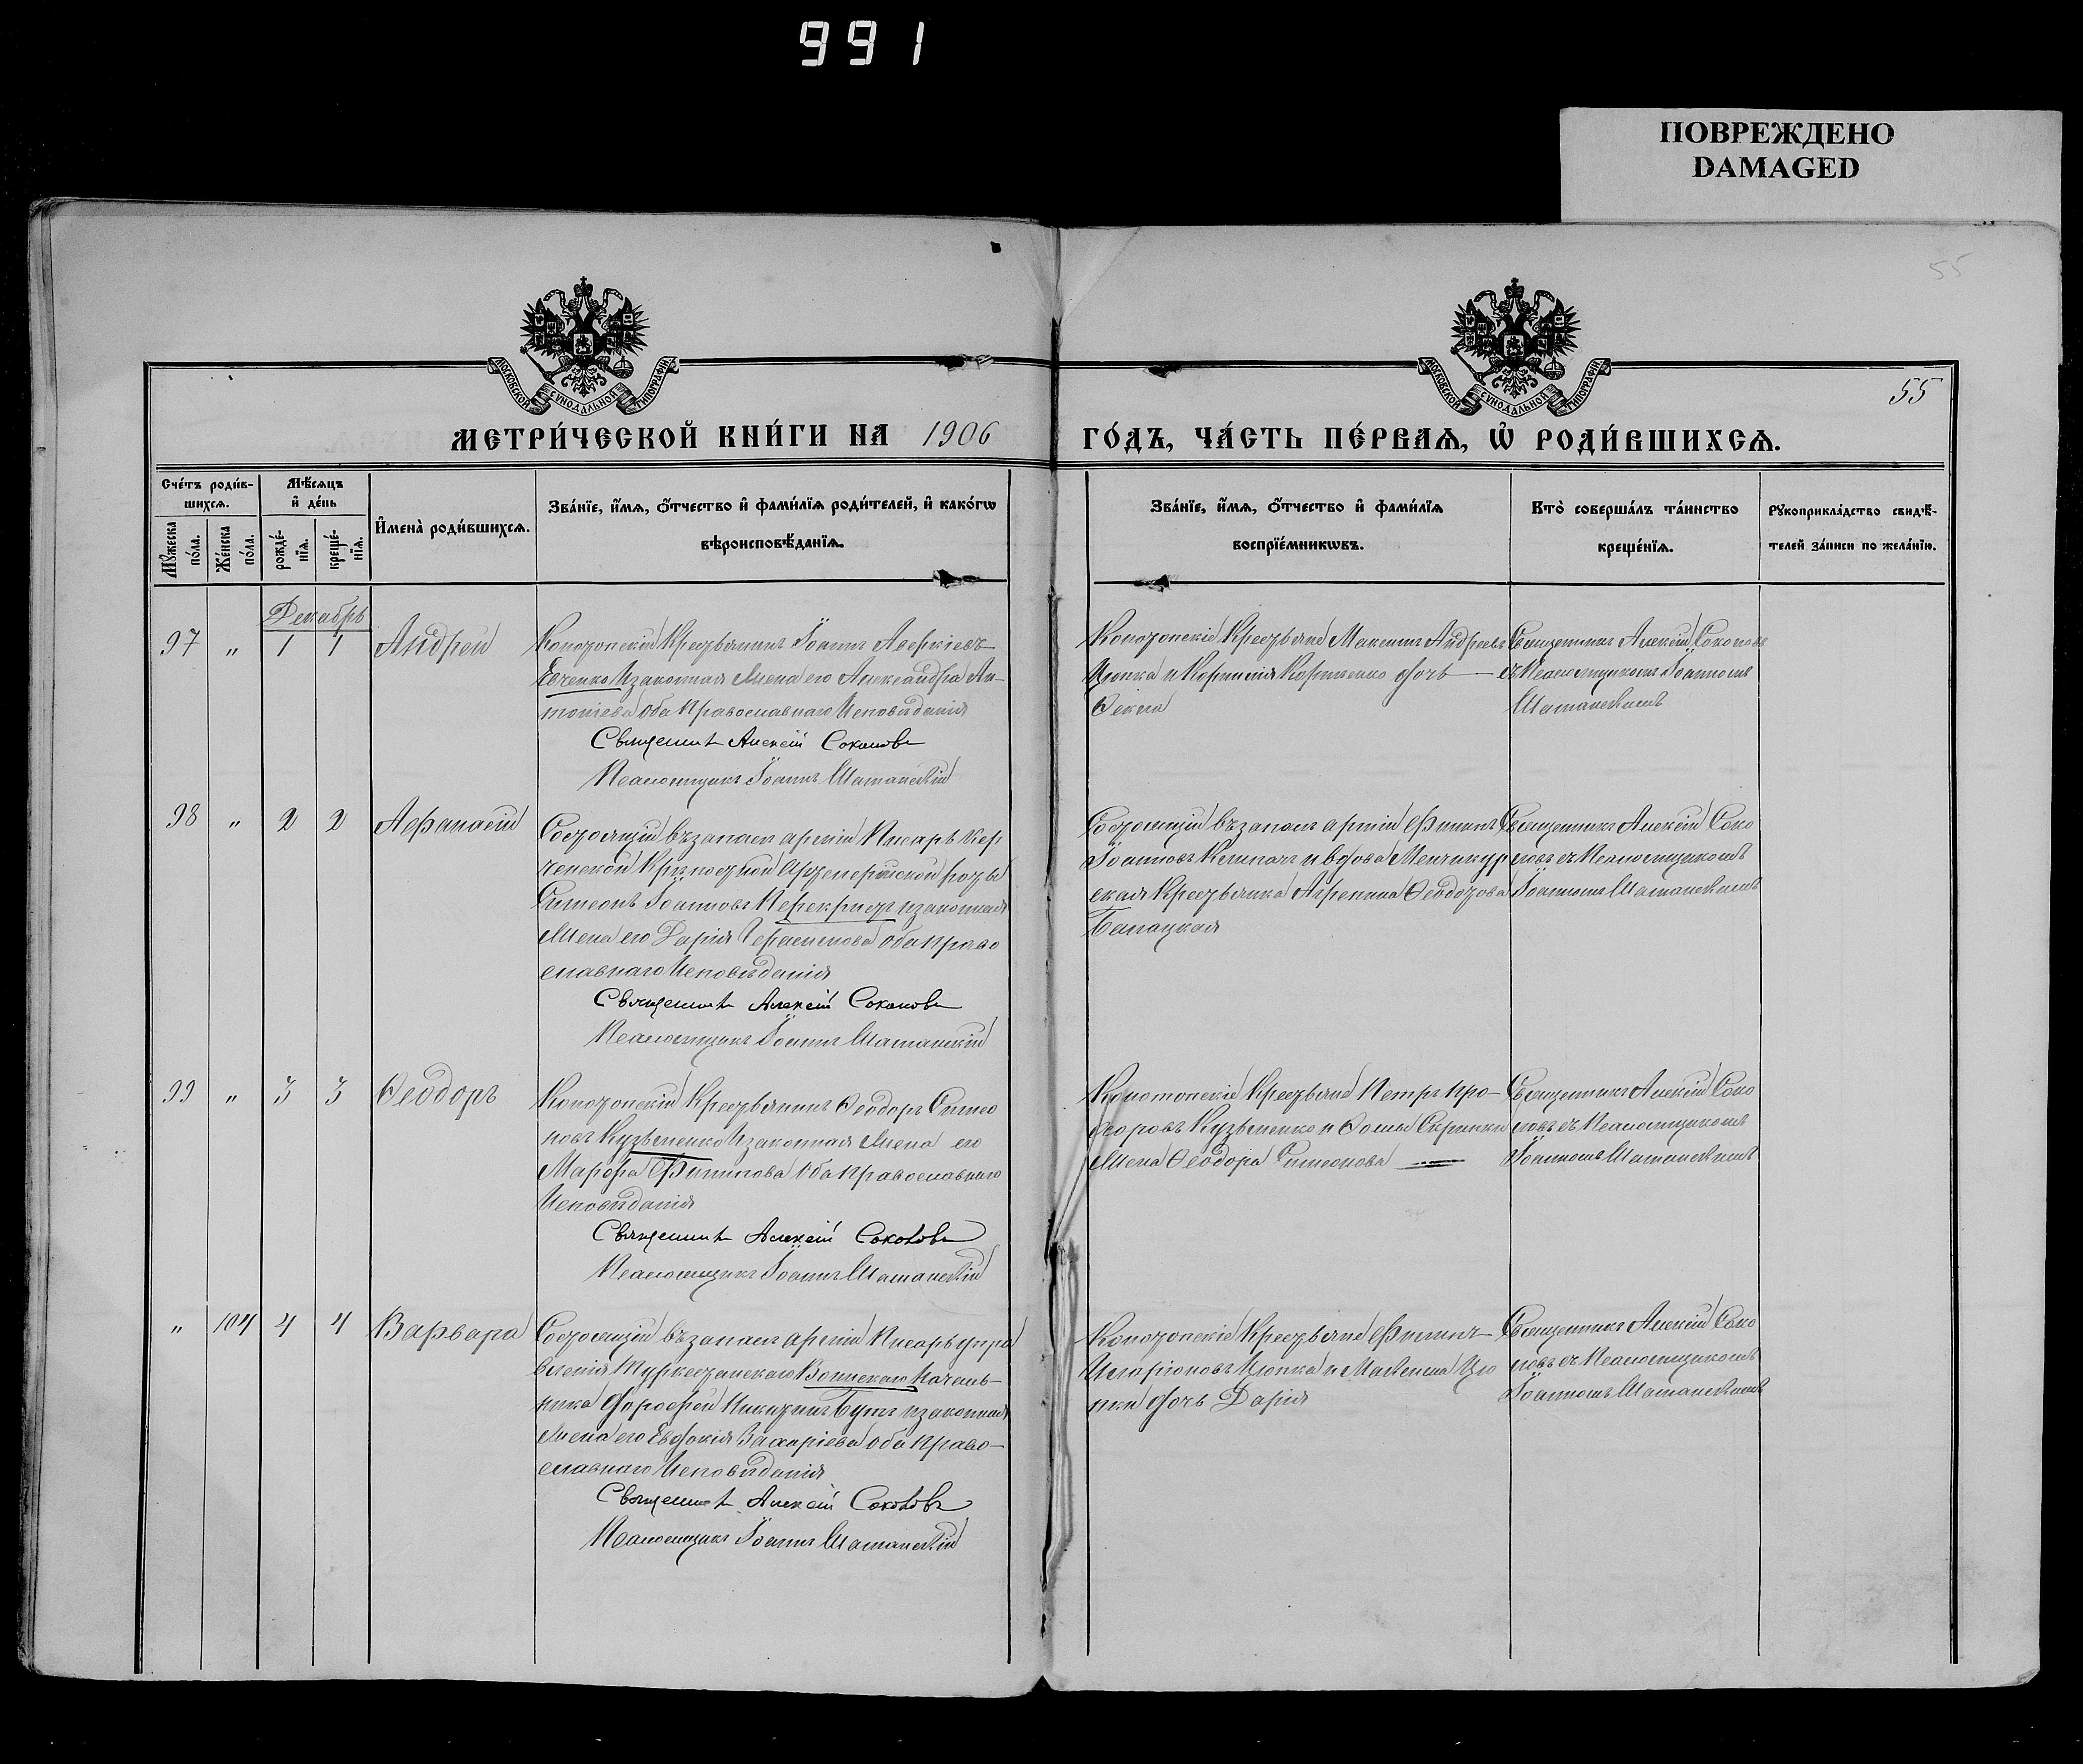 991
ПОВРЕЖДЕНО
DAMAGED
55
МОСКОВСКОЙ СѴНОДАЛЬНОЙ ТИПОГРАФІИ
МОСКОВСКОЙ СѴНОДАЛЬНОЙ ТИПОГРАФІИ
55
МЕТРИ́ЧЕСКОЙ КНИ́ГИ НА 1906
ГО́ДЪ, ЧА́СТЬ ПЕ́РВАѦ, Ѡ҆ РОДИ́ВШИХСѦ.
Сче́тъ роди́в-
шихсѧ.
Мѣ́сѧцъ
и҆ де́нь
Мꙋ́жеска по́ла.
Же́нска по́ла.
рожде́-
нїѧ.
креще́-
нїѧ.
И҆мена̀ роди́вшихсѧ.
Зва́нїе, и҆́мѧ, ѻ҆́тчество и҆ фами́лїѧ роди́телей, и҆ како́гѡ
вѣроисповѣ́данїѧ.
Зва́нїе, и҆́мѧ, ѻ҆́тчество и҆ фами́лїѧ
воспрїе́мникѡвъ.
Кто̀ соверша́лъ та́инство
креще́нїѧ.
Рꙋкоприкла́дство свидѣ́-
телей за́писи по жела́нїю.
Декабрь
97 " 1 1 Андрей
Конотопскій Крестьянинъ Іоаннъ Аверкіевъ
Евченко и законная жена его Александра Ан-
тоніева оба Православнаго Исповѣданія
Священникъ Алексій Соколовъ
Псаломщикъ Іоаннъ Шатанскій
Конотопскіе Крестьяне Максимъ Андреевъ
Цюпка и Корнилія Корниенко дочь
Ѳекла
Священникъ Алексій Соколовъ
съ Псаломщикомъ Іоанномъ
Шатанскимъ
98 " 2 2 Аѳанасій
Состоящій въ запасѣ арміи Писарь Кер
ченской Крѣпостной Артилерійской роты
Симеонъ Іоанновъ Перекрестъ и законная
жена его Дарія Герасимова оба Право
славнаго Исповѣданія
Священникъ Алексій Соколовъ
Псаломщикъ Іоаннъ Шатанскій
Состоящій въ запасѣ арміи Филипъ
Іоанновъ и вдова
ская Крестьянка Агрепина Ѳеодотова
Священникъ Алексій Соко
ловъ съ Псаломщикомъ
Іоанномъ Шатанскимъ
99 " 3 3 Ѳеодоръ
Конотопскій Крестьянинъ Ѳеодоръ Симео
новъ Кузьменко и законная жена его
Марфа Филипова оба Православнаго
Исповѣданія
Священникъ Алексій Соколовъ
Псаломщикъ Іоаннъ Шатанскій
Конотопскіе Крестьяне Петръ Про-
хоровъ Кузьменко и Ѳомы Скрипки
жена Ѳеодора Симеонова
Священникъ Алексій Соко
ловъ съ Псаломщикомъ
Іоанномъ Шатанскимъ
" 104 4 4 Варвара
Состоящій въ запасѣ арміи Писарь упра
вленія Туркестанскаго Воинскаго Началь-
ника Дорофей Никитинъ Бутъ и законная
жена его Евдокія оба Право-
славнаго Исповѣданія
Священникъ Алексій Соколовъ
Псаломщикъ Іоаннъ Шатанскій
Конотопскіе Крестьяне Филипъ
Иларіоновъ Цюпка и Максима Цю
пки дочь Дарія
Священникъ Алексій Соко
ловъ съ Псаломщикомъ
Іоанномъ Шатанскимъ